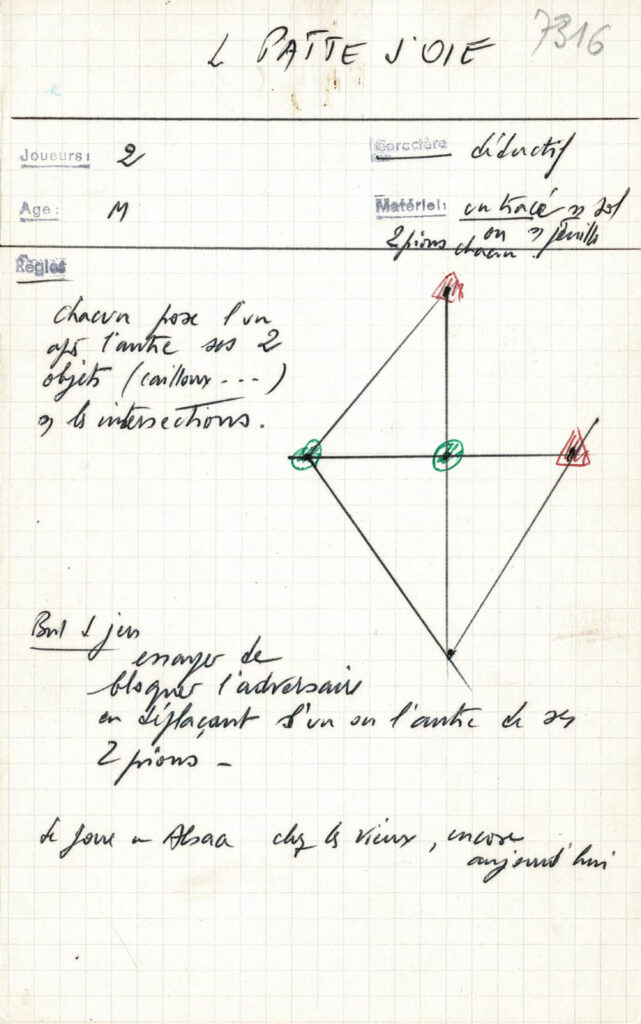 L PATTE d'OIE
7316
Joueurs: 2
Caractère déductif
Age: M
Matériel: un tracé sol
ou feuille
2 pions chacun.
Règles
chacun pose l'un
apr l'autre ses 2
objets (cailloux ---)
ls intersections.
But d jeu
essayer de
bloquer l'adversaire
en déplaçant l'un ou l'autre de ses
2 pions -
se joue en Alsace chez les vieux, encore
aujourd'hui